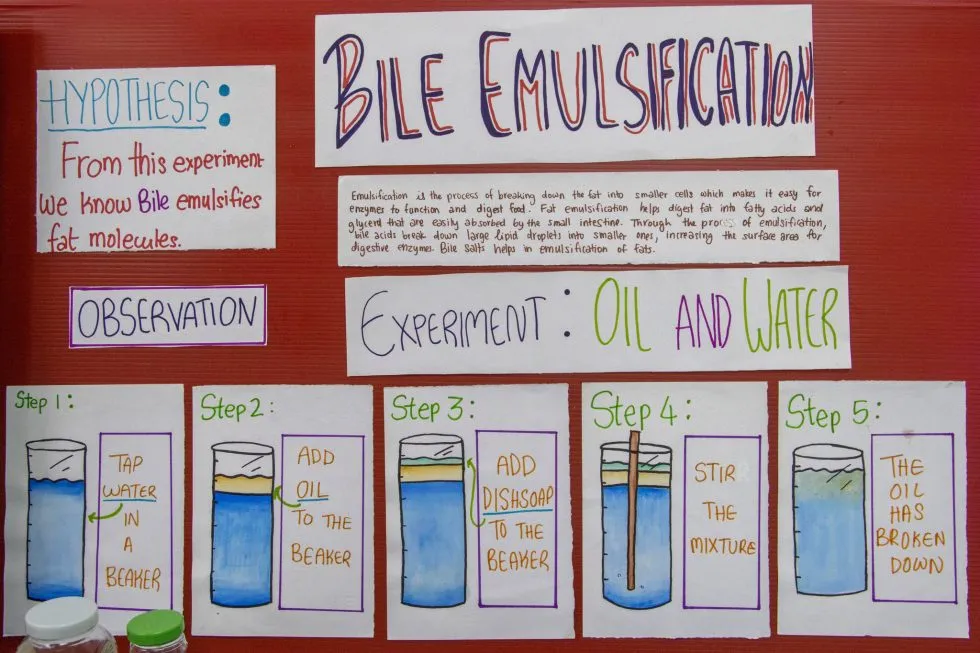 BILE EMULSIFICATION
HYPOTHESIS:
From this experiment
we know Bile emulsifies
fat molecules.
Emulsification is the process of breaking down the fat into smaller cells which makes it easy for
enzymes to function and digest food. Fat emulsification helps digest fat into fatty acids and
glycerol that are easily absorbed by the small intestine. Through the process of emulsification,
bile acids break down large lipid droplets into smaller ones, increasing the surface area for
digestive enzymes. Bile Salts helps in emulsification of fats.
OBSERVATION
EXPERIMENT: OIL AND WATER
Step 1:
TAP
WATER
IN
A
BEAKER
Step 2:
ADD
OIL
TO THE
BEAKER
Step 3:
ADD
DISHSOAP
TO THE
BEAKER
Step 4:
STIR
THE
MIXTURE
Step 5:
THE
OIL
HAS
BROKEN
DOWN